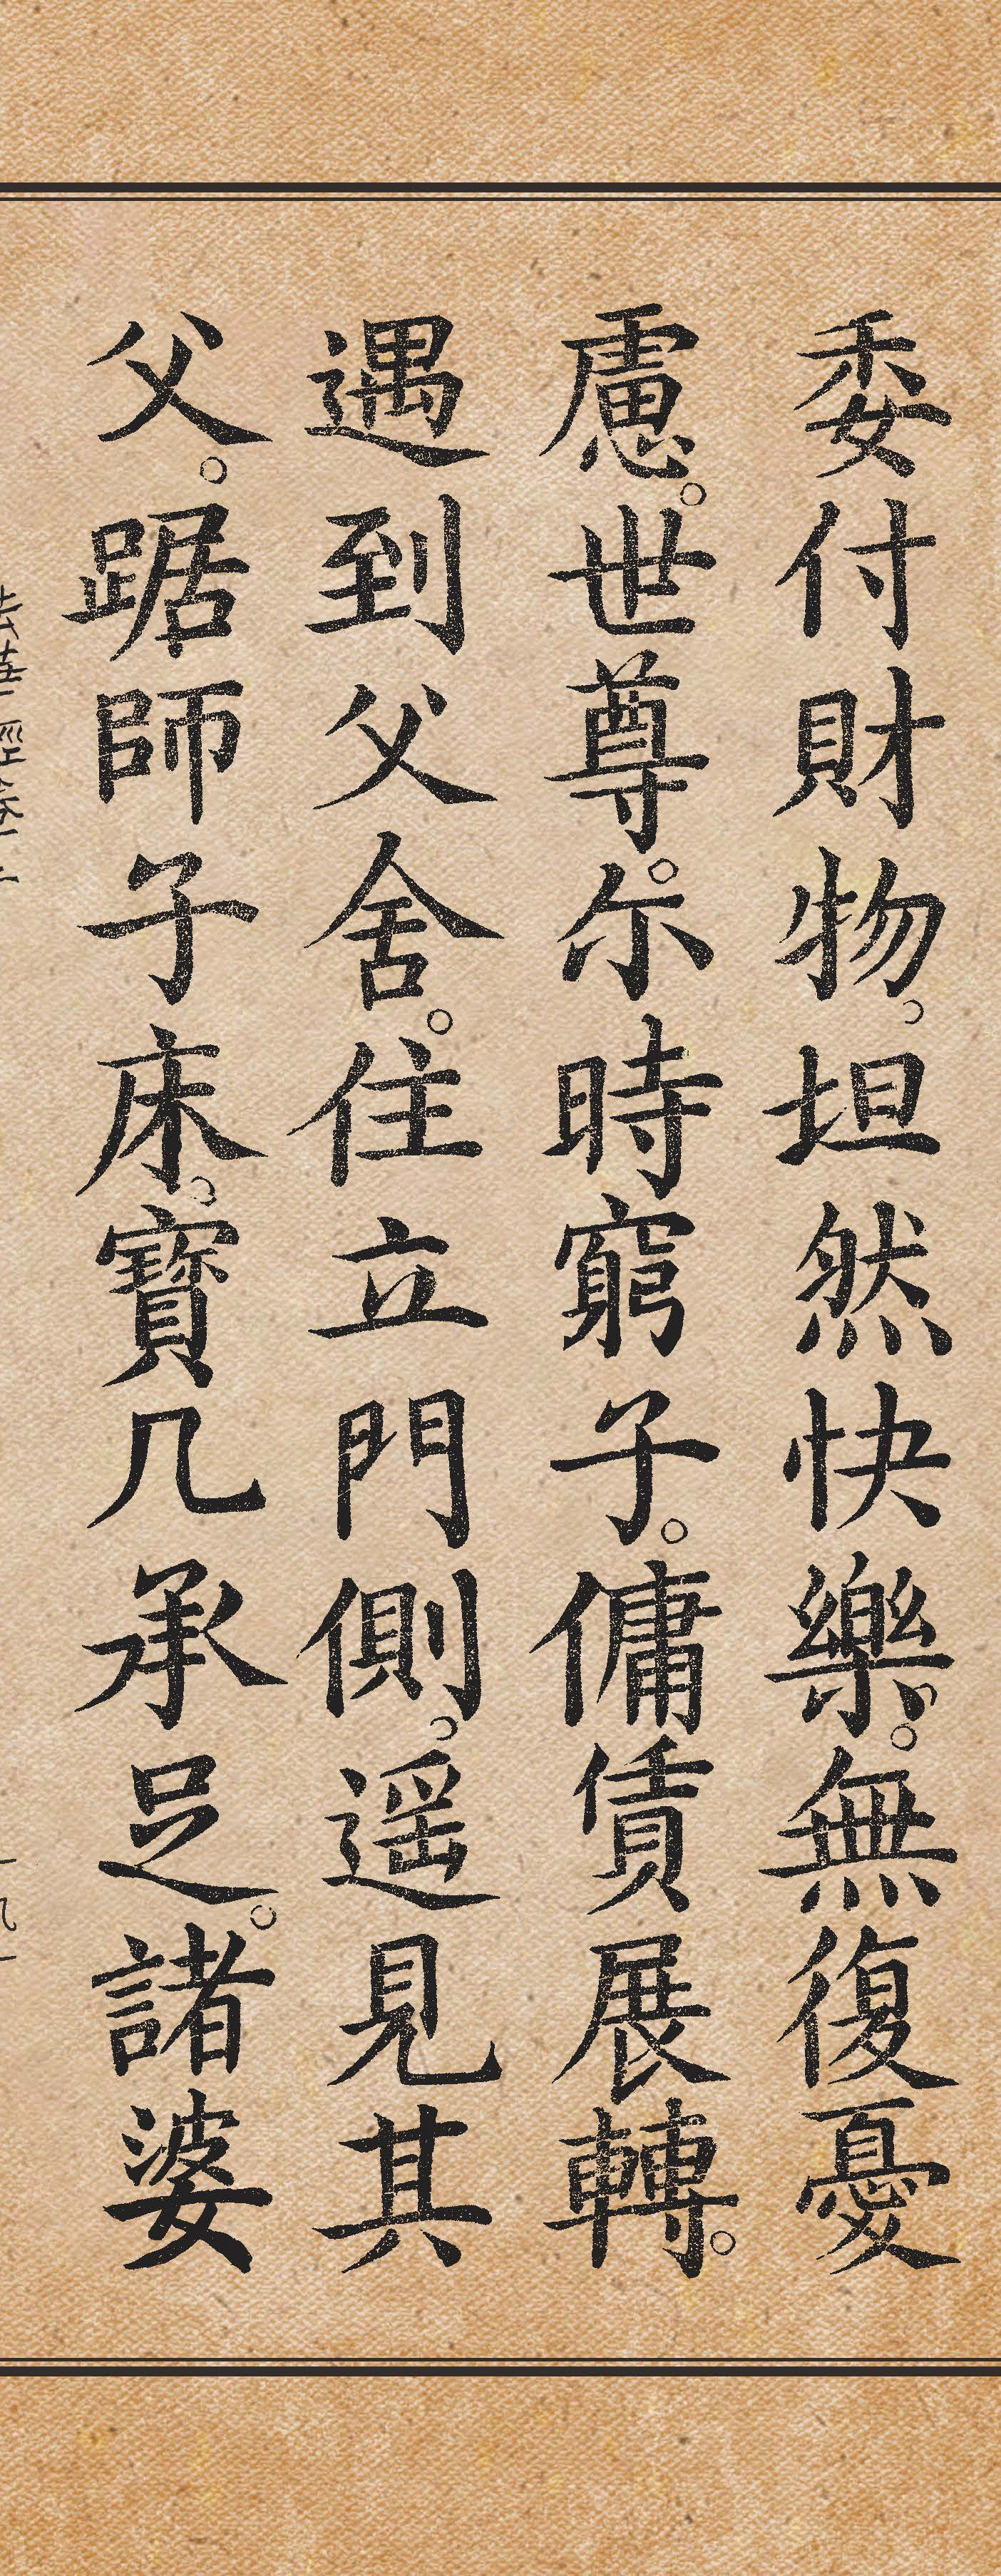 委付財物。坦然快樂。無復憂
慮。世尊。尒時窮子。傭賃展轉。
遇到父舍。住立門側。遥見其
父。踞師子床。寶几承足。諸婆